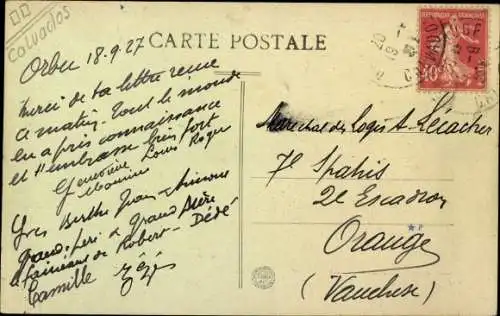 Calvados
CARTE POSTALE
Orbec 18.9.27
Merci de ta lettre reçue
ce matin. Tout le monde
en a pris connaissance
et t'embrasse bien fort
Geneviève Louis Roger
Maurice
Yves Berthe Jean Simone
grand-père & grand-mère
Robert - Dédé
Camille Zézé
Maréchal des logis A. Lecacher
7e Spahis
2e Escadron
Orange
(Vaucluse)